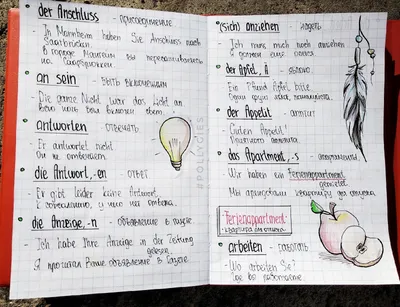 der Anschluss - присоединение
- In Mannheim haben Sie Anschluss nach
Saarbrücken.
В городе Мангейм вы пересаживаетесь
на Саарбрюккен.
an sein - быть включенным
- Die ganze Nacht war das Licht an
Всю ночь был включен свет.
antworten - отвечать
- Er antwortet nicht
Он не отвечает.
die Antwort, -en - ответ
- Er gibt leider keine Antwort.
К сожалению, у него нет ответа.
die Anzeige, -n - объявление в газете
- Ich habe Ihre Anzeige in der Zeitung
gelesen.
Я прочитал Ваше объявление в газете.
#POLLYGIES
(sich) anziehen - надеть
- Ich muss mich noch anziehen
Я должен еще одеться.
der Apfel, Ä - яблоко
- Ein Pfund Äpfel bitte
Один фунт яблок, пожалуйста.
der Appetit - аппетит
- Guten Appetit!
Приятного аппетита
das Apartment, -s - апартаменты
- Wir haben ein Ferienappartment
gemietet.
Мы арендовали квартиру для отпуска.
Ferienappartment -
квартира для отпуска
arbeiten - работать
- Wo arbeiten Sie?
Где вы работаете